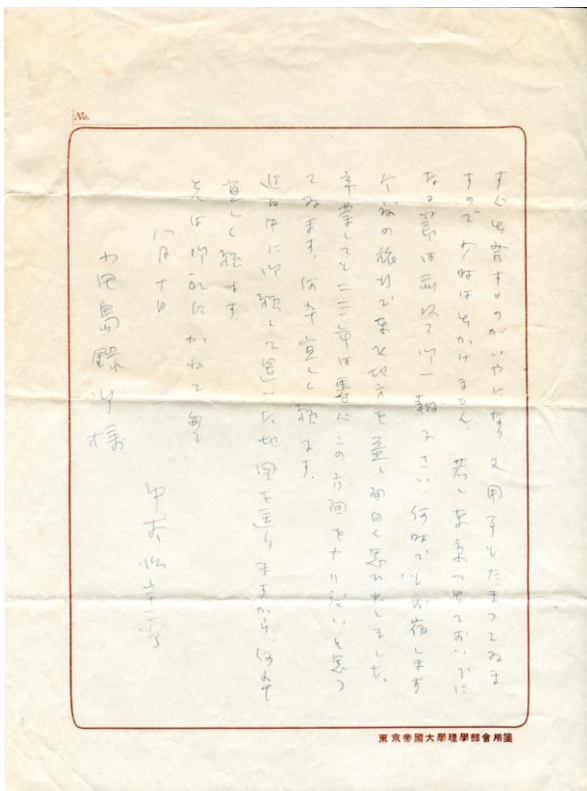 No.
すぐ出発するのがいやになり 又用事もたまつてゐま
すので 当時は出かけません. 若し東京へ出ておいでに
なる節は前以て御一報下さい 何時でもお宿します
今般の旅行で東北地方を 面白く思ひ出しました.
卒業しても二三年は専心この方面をやりたいと思つ
てゐます. 何卒宜しく願ます.
近日中に御願して置いた地図を送りますから、何卒
宜しく願ます
先は御礼にかねて
八月十日
小田島録 様
東京帝國大學理學部會用箋